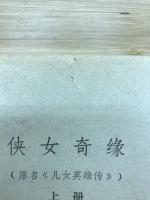 侠女奇缘
(原名《儿女英雄传》)
上册